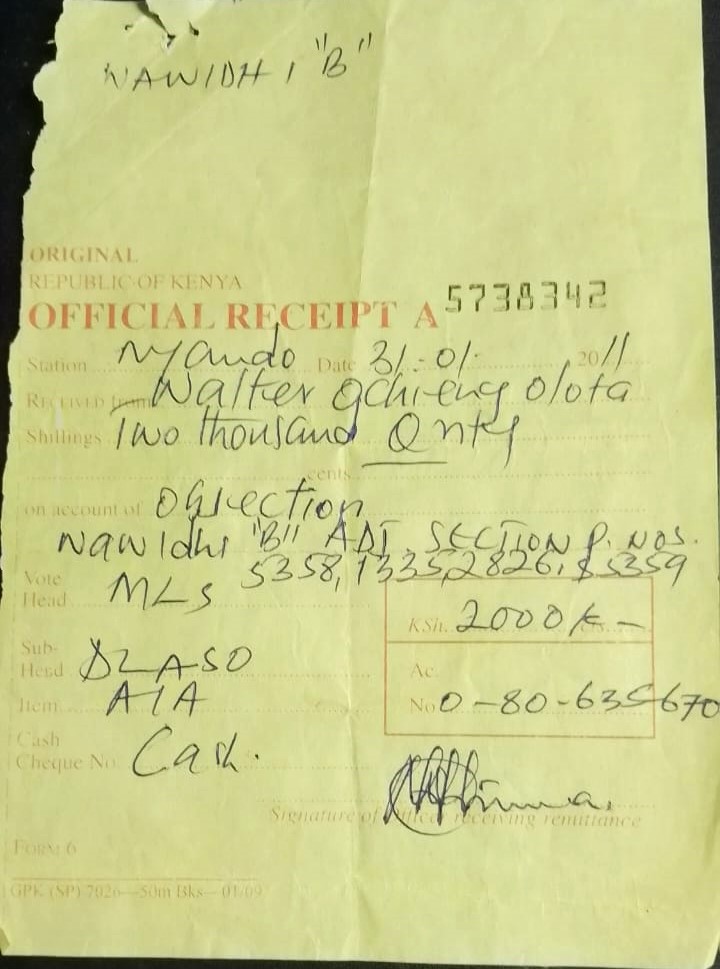 NAWIDHI "B"
ORIGINAL
REPUBLIC OF KENYA
OFFICIAL RECEIPT A 5738342
Station Nyando Date 31-01- 2011
RECEIVED from Walter Ochieng Olota
Shillings Two thousand Only
cents
on account of Objection
Nawidhi "B" ADJ. SECTION P. NOS.
5358, 1335, 2826, & 5359
Vote Head MLs
KSh. 2000/- Cts.
Sub-Head DLASO
Ac.
Item AIA
No 0-80-635670
Cash
Cheque No Cash.
Signature of Officer receiving remittance
FORM 6
GPK (SP) 7026—50m Bks—01/09